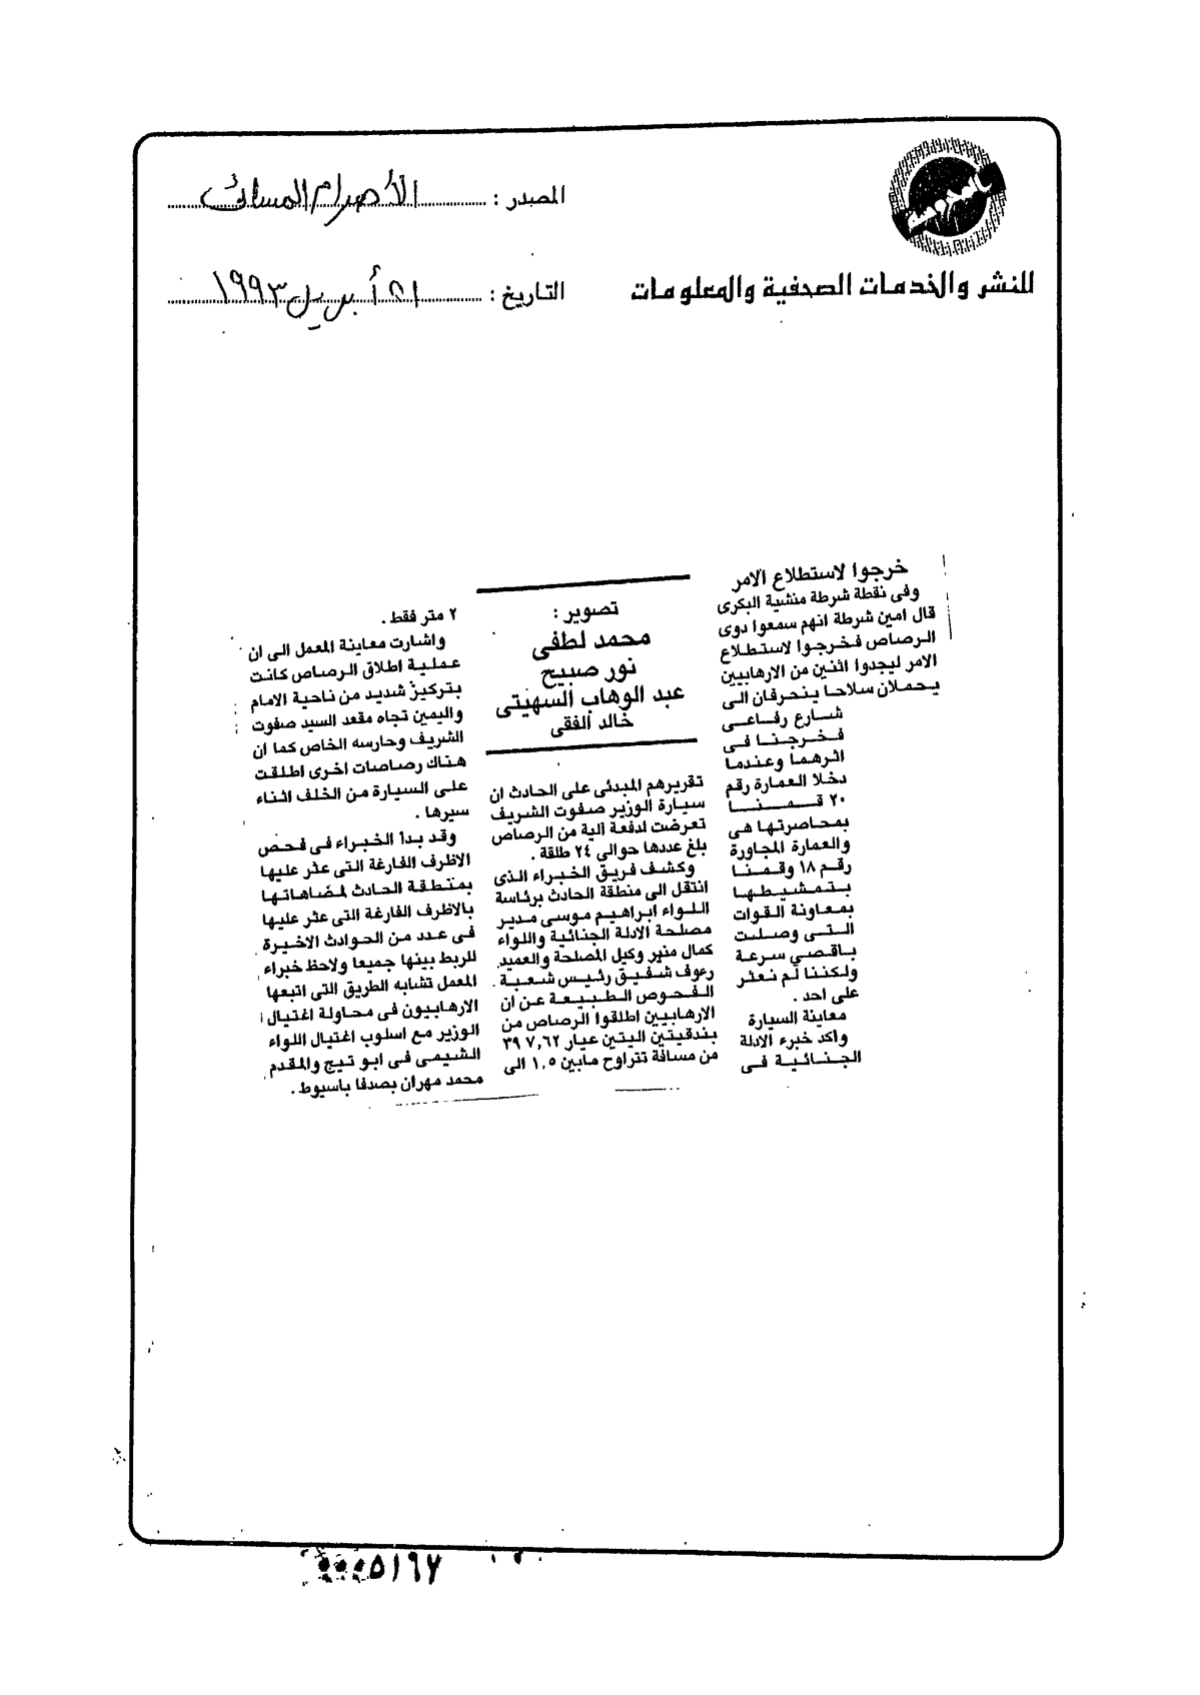 المصدر : الأهرام المسائى
للنشر والخدمات الصحفية والمعلومات
التاريخ : ٢١ أبريل ١٩٩٣
خرجوا لاستطلاع الامر
وفى نقطة شرطة منشية البكرى
قال امين شرطة انهم سمعوا دوى
الرصاص فخرجوا لاستطلاع
الامر ليجدوا اثنين من الارهابيين
يحملان سلاحا ينحرفان الى
شارع رفاعى
فخرجنا فى
اثرهما وعندما
دخلا العمارة رقم
٢٠ قمنا
بمحاصرتها هى
والعمارة المجاورة
رقم ١٨ وقمنا
بتمشيطها
بمعاونة القوات
التى وصلت
باقصي سرعة
ولكننا لم نعثر
على احد .
معاينة السيارة
واكد خبراء الادلة
الجنائية فى
تصوير :
محمد لطفى
نور صبيح
عبد الوهاب السهيتى
خالد الفقى
تقريرهم المبدئى على الحادث ان
سيارة الوزير صفوت الشريف
تعرضت لدفعة الية من الرصاص
بلغ عددها حوالى ٢٤ طلقة .
وكشف فريق الخبراء الذى
انتقل الى منطقة الحادث برئاسة
اللواء ابراهيم موسى مدير
مصلحة الادلة الجنائية واللواء
كمال منير وكيل المصلحة والعميد
رءوف شفيق رئيس شعبة
الفحوص الطبيعة عن ان
الارهابيين اطلقوا الرصاص من
بندقيتين اليتين عيار ٧,٦٢ ٣٩
من مسافة تتراوح مابين ١,٥ الى
٢ متر فقط .
واشارت معاينة المعمل الى ان
عملية اطلاق الرصاص كانت
بتركيز شديد من ناحية الامام
واليمين تجاه مقعد السيد صفوت
الشريف وحارسه الخاص كما ان
هناك رصاصات اخرى اطلقت
على السيارة من الخلف اثناء
سيرها .
وقد بدأ الخبراء فى فحص
الاظرف الفارغة التى عثر عليها
بمنطقة الحادث لمضاهاتها
بالاظرف الفارغة التى عثر عليها
فى عدد من الحوادث الاخيرة
للربط بينها جميعا ولاحظ خبراء
المعمل تشابه الطريق التى اتبعها
الارهابيون فى محاولة اغتيال
الوزير مع اسلوب اغتيال اللواء
الشيمى فى ابو تيج والمقدم
محمد مهران بصدفا باسيوط .
٥١٦٧